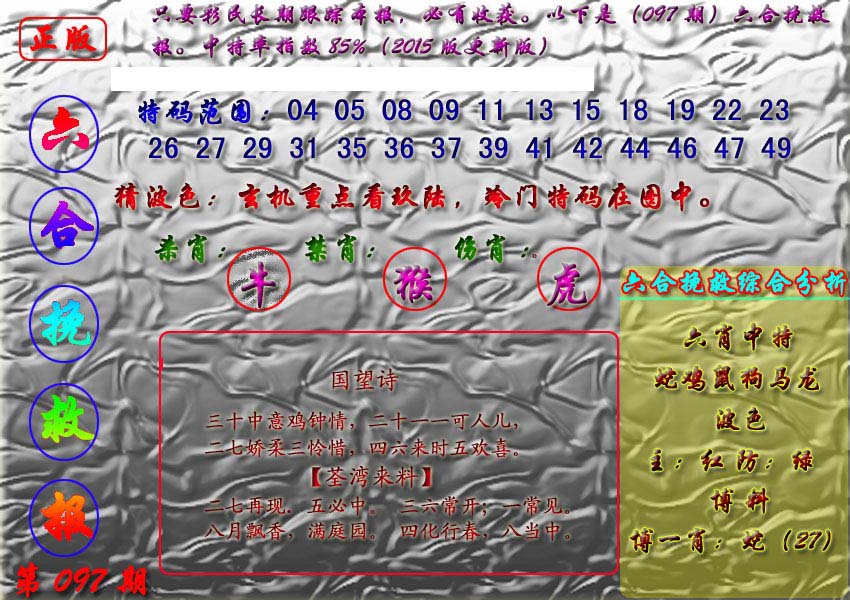 正版
只要彩民长期跟踪本报，必有收获。以下是（097期）六合挽救
报。中特率指数85%（2015版更新版）
六合挽救报
第097期
特码范围：04 05 08 09 11 13 15 18 19 22 23
26 27 29 31 35 36 37 39 41 42 44 46 47 49
猜波色：玄机重点看玖陆，冷门特码在图中。
杀肖：牛 禁肖：猴 伤肖：虎
国望诗
三十中意鸡钟情，二十一一可人儿，
二七娇柔三怜惜，四六来时五欢喜。
【荃湾来料】
二七再现．五必中。 三六常开；一常见。
八月飘香，满庭园。 四化行春，八当中。
六合挽救综合分析
六肖中特
蛇鸡鼠狗马龙
波色
主：红防：绿
博料
博一肖：蛇（27）